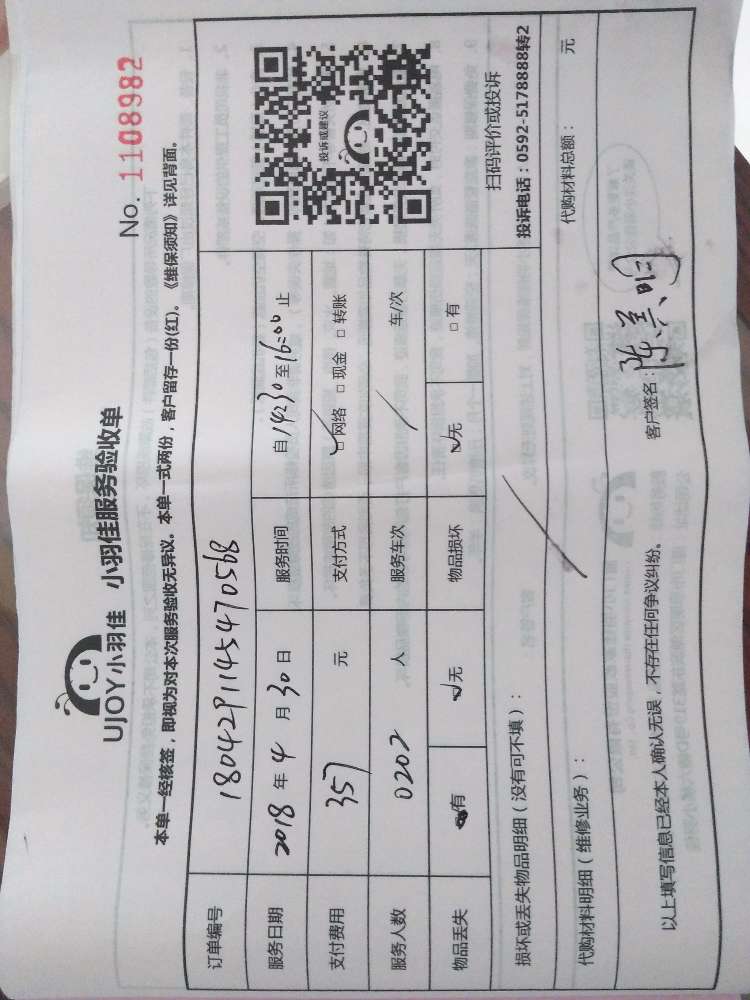 UJOY小羽佳 小羽佳服务验收单
No. 1108982
本单一经核签，即视为对本次服务验收无异议。本单一式两份，客户留存一份(红)。《维保须知》详见背面。
订单编号 1804291145470568
服务日期 2018 年 4 月 30 日 服务时间 自 14:30 至 16:00 止
支付费用 357 元 支付方式 ☑网络 □现金 □转账
服务人数 0202 人 服务车次 / 车/次
物品丢失 有 ☑无 物品损坏 ☑无 □有
投诉或建议
扫码评价或投诉
投诉电话：0592-5178888转2
损坏或丢失物品明细（没有可不填）：
代购材料明细（维修业务）： 代购材料总额： 元
以上填写信息已经本人确认无误，不存在任何争议纠纷。 客户签名：陈美明